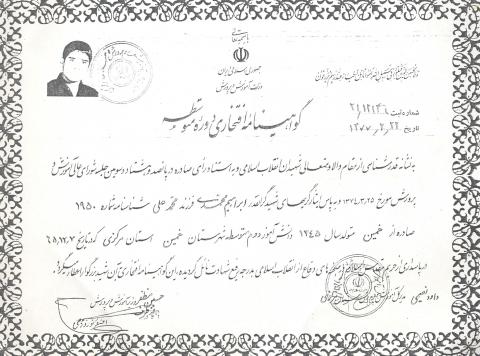 باسمه تعالی
جمهوری اسلامی ایران
وزارت آموزش و پرورش
شماره ثبت
تاریخ ۱۳۷۷/۲/۲۲
گواهینامه افتخاری دوره متوسطه
به نشانه قدرشناسی از مقام والا و متعالی شهیدان انقلاب اسلامی و به استناد رأی صادره در پانصد و هشتاد و سومین جلسه شورای عالی آموزش و
پرورش مورخ ۱۳۷۶/۳/۲۵ و به پاس ایثارگریهای شهید گرانقدر ابراهیم محمدی فرزند محمد علی شناسنامه شماره ۱۹۵۰
صادره از خمین متولد سال ۱۳۴۵ دانش آموز دوم متوسطه شهرستان خمین استان مرکزی که در تاریخ ۶۵,۱۲,۷
در پاسداری از حریم دفاع از انقلاب اسلامی به درجه رفیع شهادت نائل گردیده، این گواهینامه افتخاری آن شهید بزرگوار اعطا میگردد.
داود نعیمی
حسین مظفر وزیر آموزش و پرورش